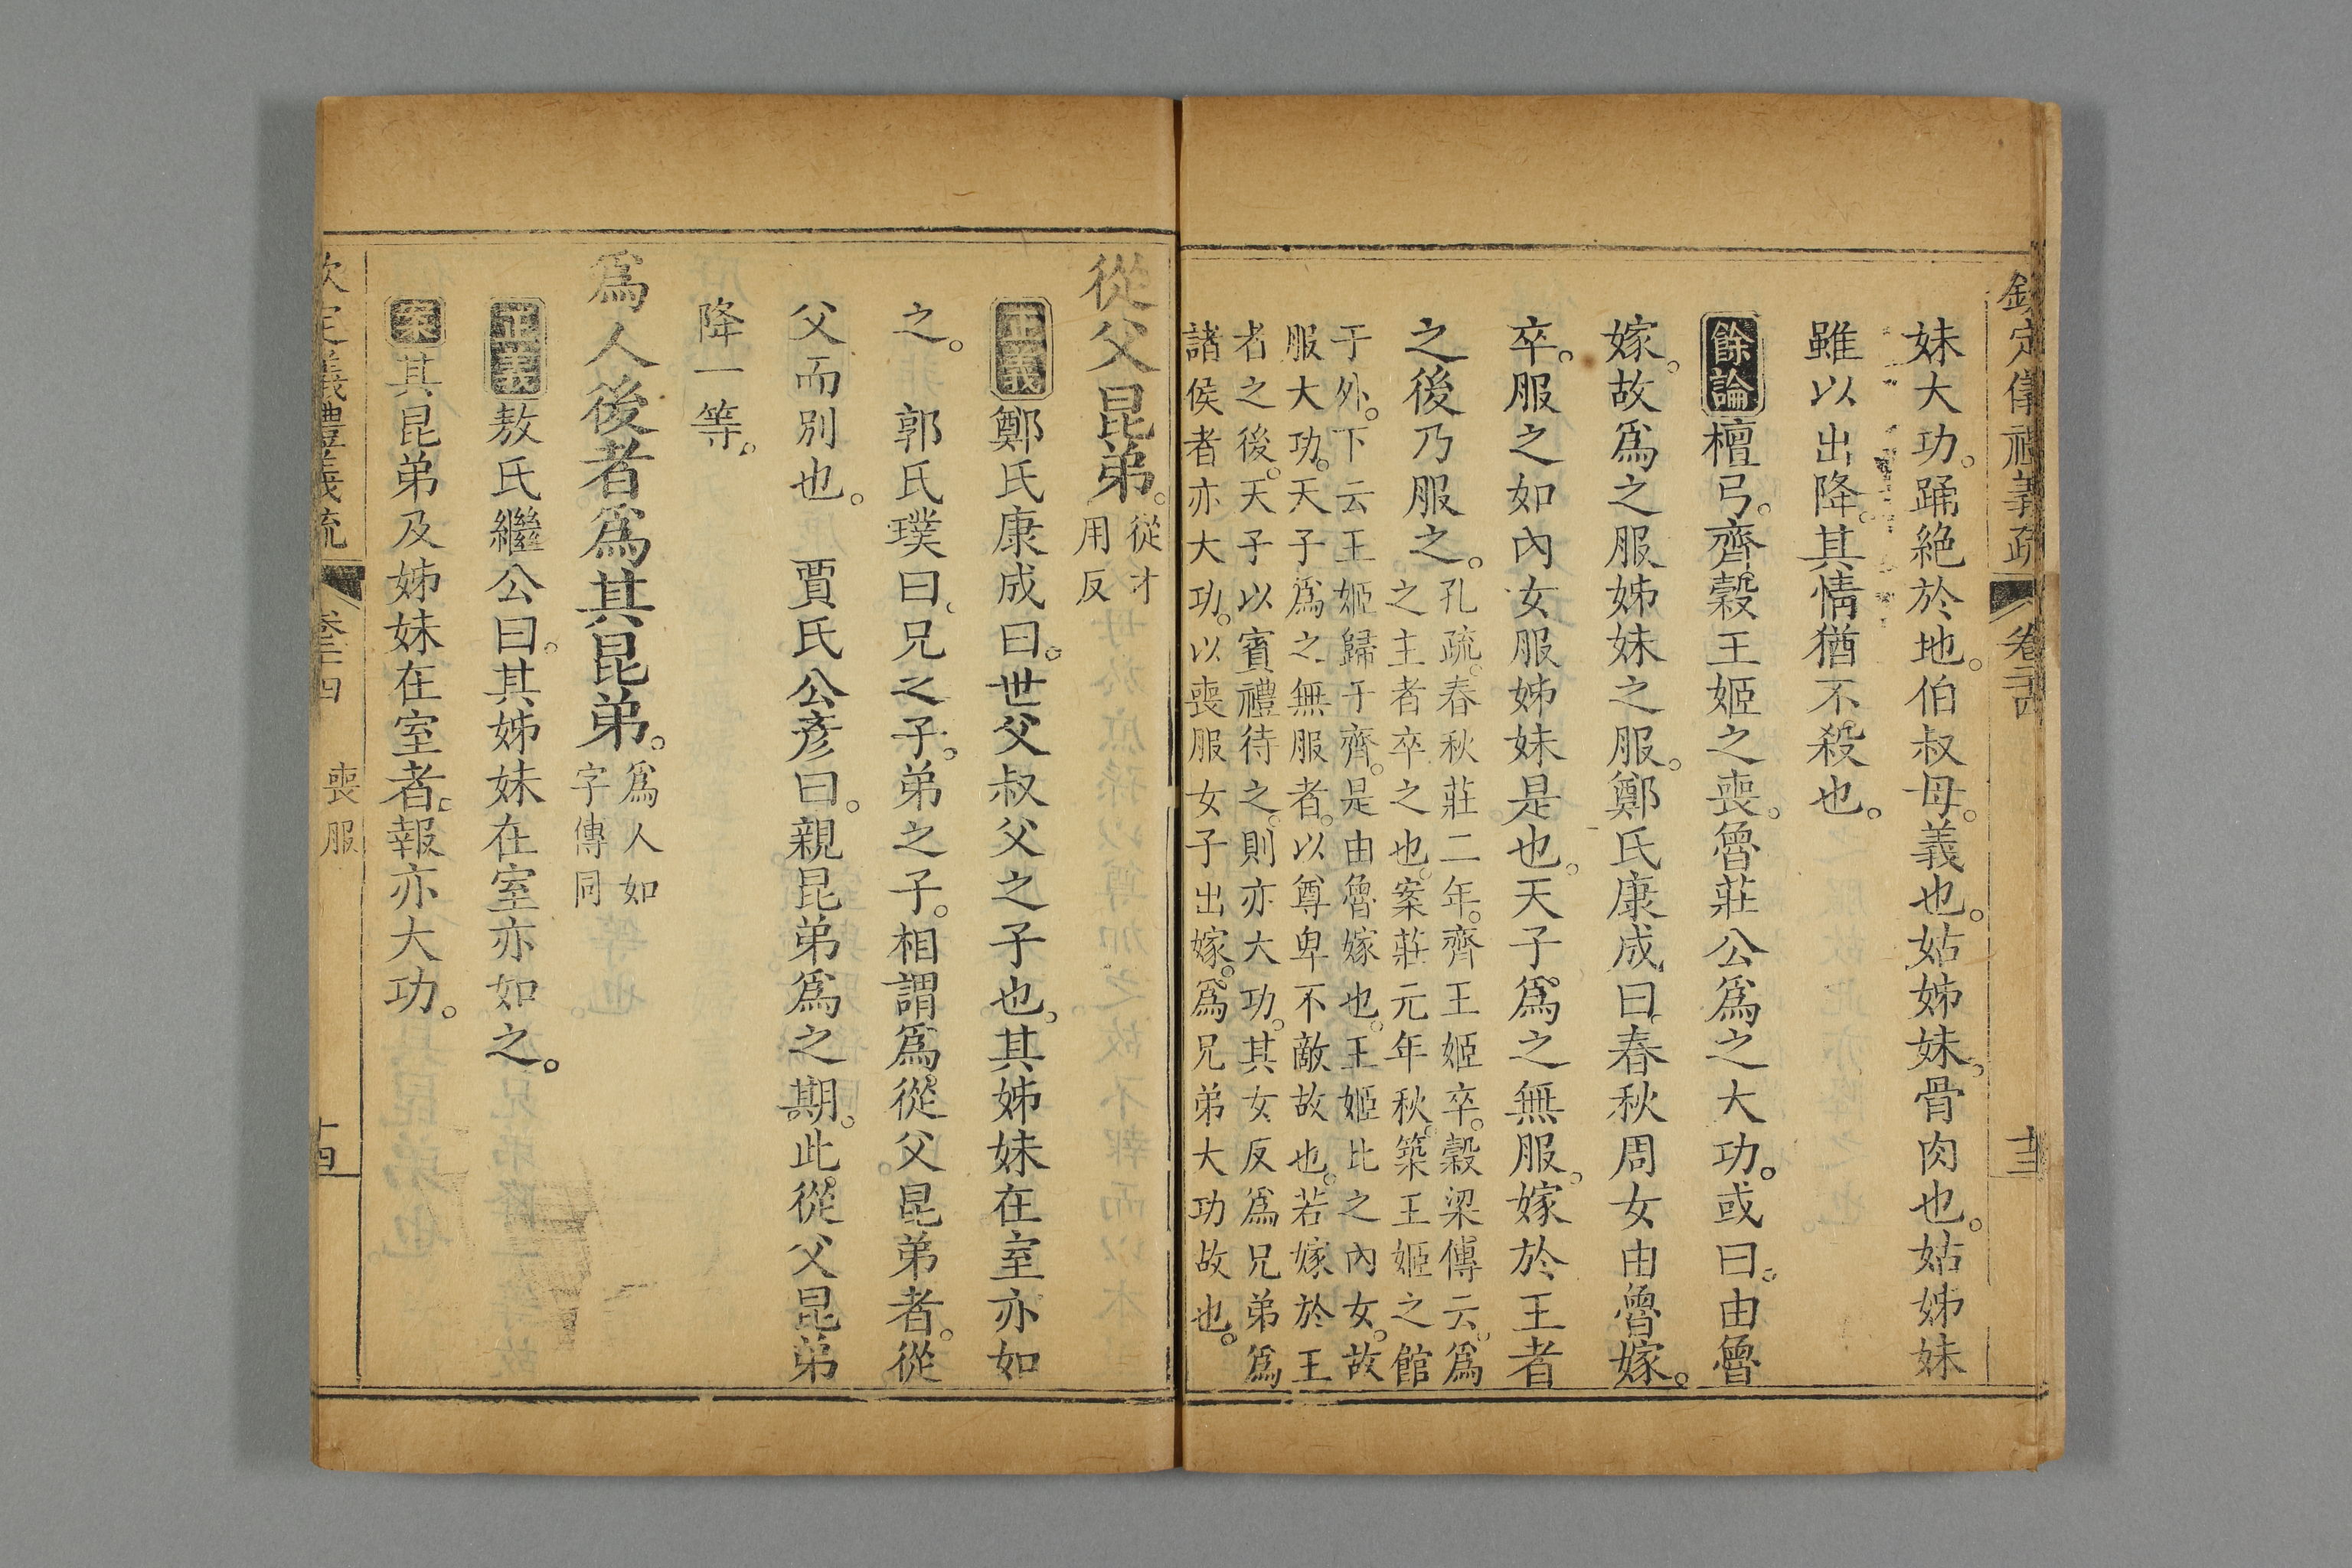 欽定儀禮義疏 卷二十四 十三
妹大功。踊絕於地。伯叔母。義也。姑姊妹。骨肉也。姑姊妹
雖以出降。其情猶不殺也。
餘論 檀弓。齊穀王姬之喪。魯莊公爲之大功。或曰。由魯
嫁。故爲之服姊妹之服。鄭氏康成曰。春秋周女由魯嫁。
卒。服之如內女服姊妹是也。天子爲之無服。嫁於王者
之後乃服之。
孔疏。春秋莊二年。齊王姬卒。穀梁傳云。爲
之主者卒之也。案莊元年秋。築王姬之館
于外。下云王姬歸于齊。是由魯嫁也。王姬比之內女。故
服大功。天子爲之無服者。以尊卑不敵故也。若嫁於王
者之後。天子以賓禮待之。則亦大功。其女反爲兄弟爲
諸侯者亦大功。以喪服女子出嫁。爲兄弟大功故也。
從父昆弟。
從才
用反
正義 鄭氏康成曰。世父叔父之子也。其姊妹在室亦如
之。 郭氏璞曰。兄之子。弟之子。相謂爲從父昆弟者。從
父而別也。 賈氏公彥曰。親昆弟爲之期。此從父昆弟
降一等。
爲人後者爲其昆弟。
爲人如
字傳同
正義 敖氏繼公曰。其姊妹在室亦如之。
案 其昆弟及姊妹在室者。報亦大功。
欽定儀禮義疏 卷二十四 喪服 十四